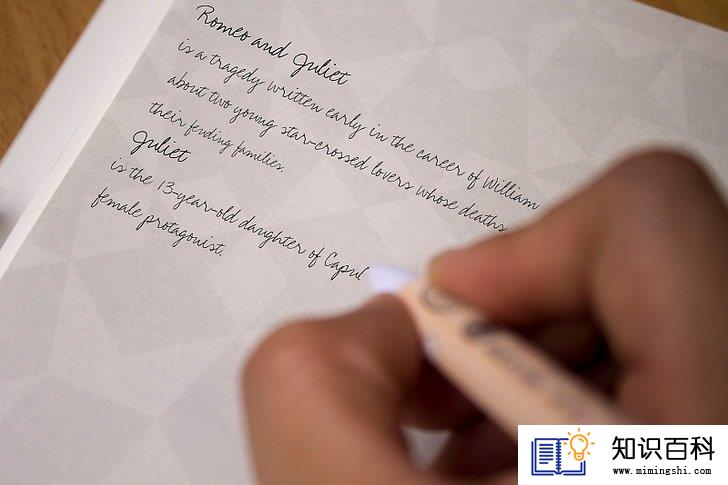 Romeo and Juliet
is a tragedy written early in the career of William
about two young star-crossed lovers whose deaths
their feuding families.
Juliet
is the 13-year-old daughter of Capul
female protagonist.
知识百科
www.mimingshi.com